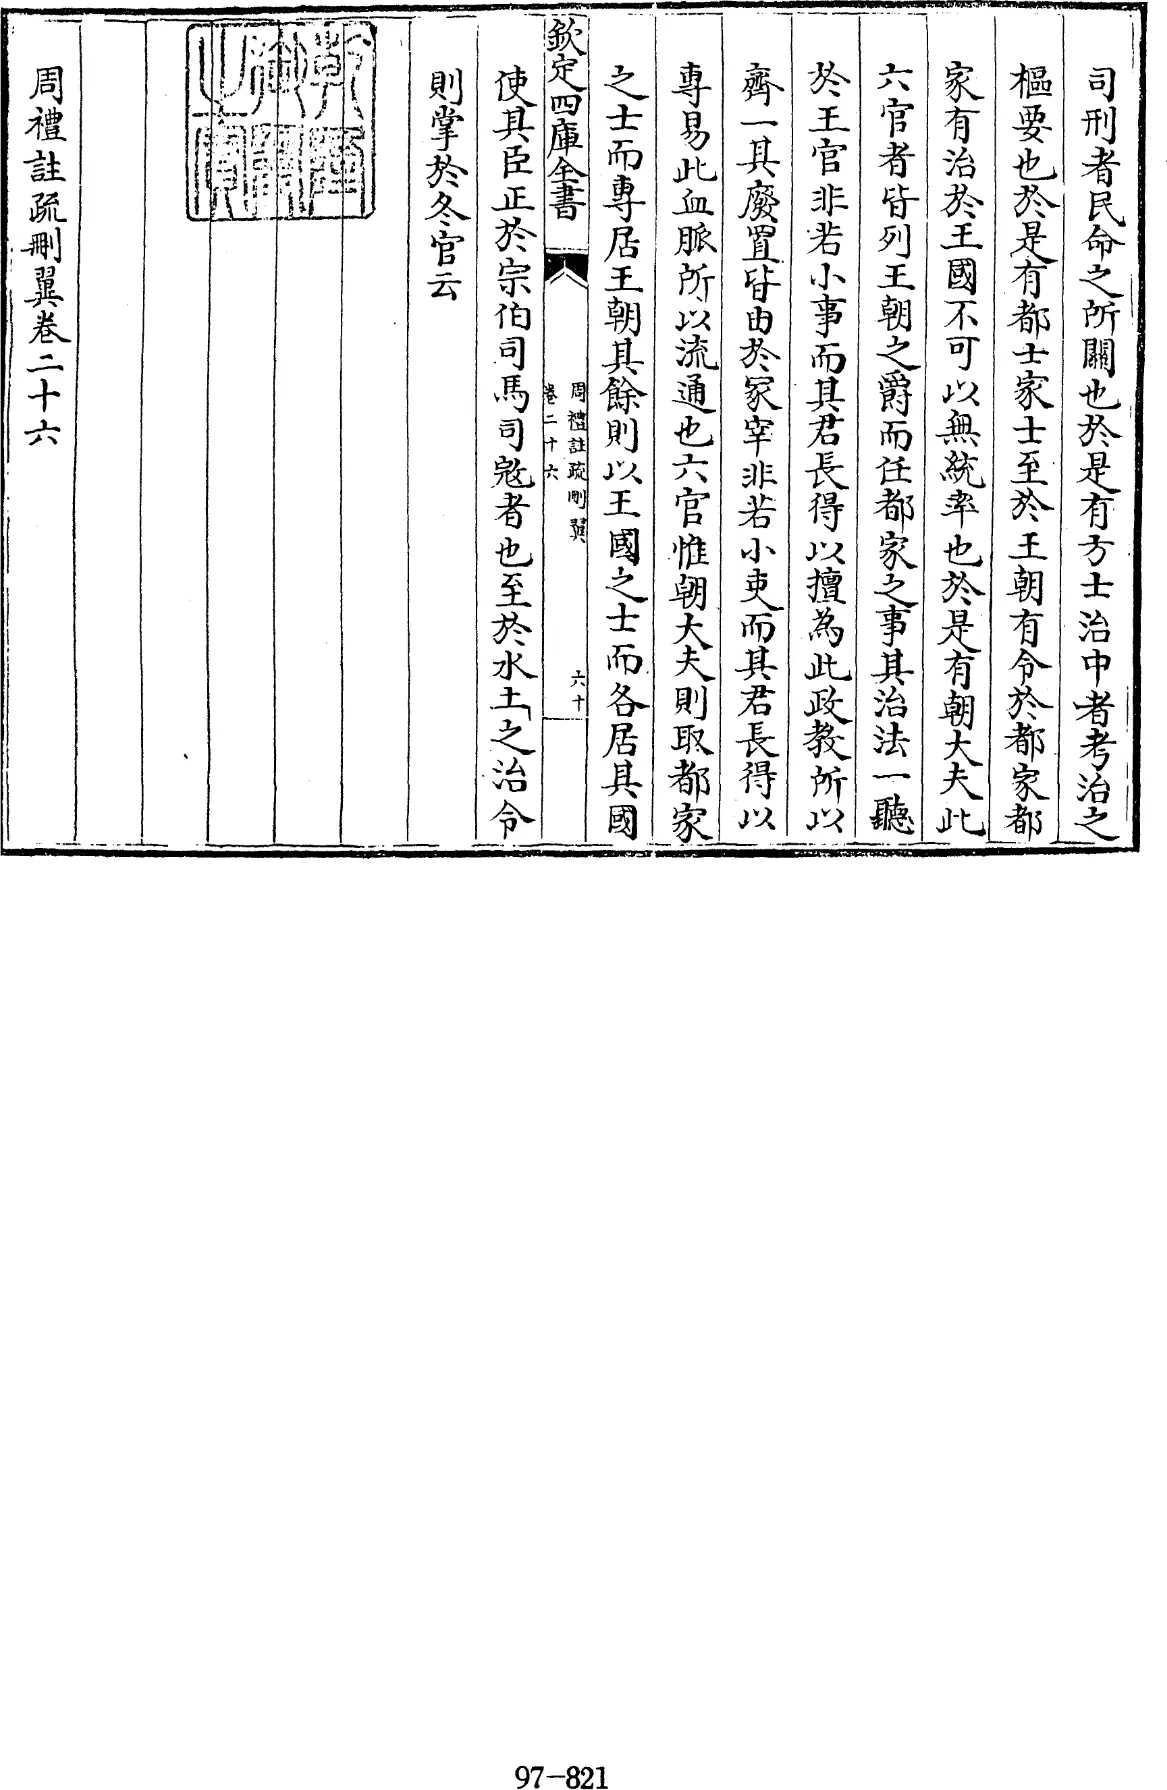 司刑者民命之所關也於是有方士治中者考治之
樞要也於是有都士家士至於王朝有令於都家都
家有治於王國不可以無統率也於是有朝大夫此
六官者皆列王朝之爵而任都家之事其治法一聽
於王官非若小事而其君長得以擅為此政教所以
齊一其廢置皆由於冡宰非若小吏而其君長得以
專易此血脈所以流通也六官惟朝大夫則取都家
之士而專居王朝其餘則以王國之士而各居其國
欽定四庫全書
周禮註疏刪翼
卷二十六
六十
使其臣正於宗伯司馬司宼者也至於水土之治令
則掌於冬官云
周禮註疏刪翼卷二十六
97-821